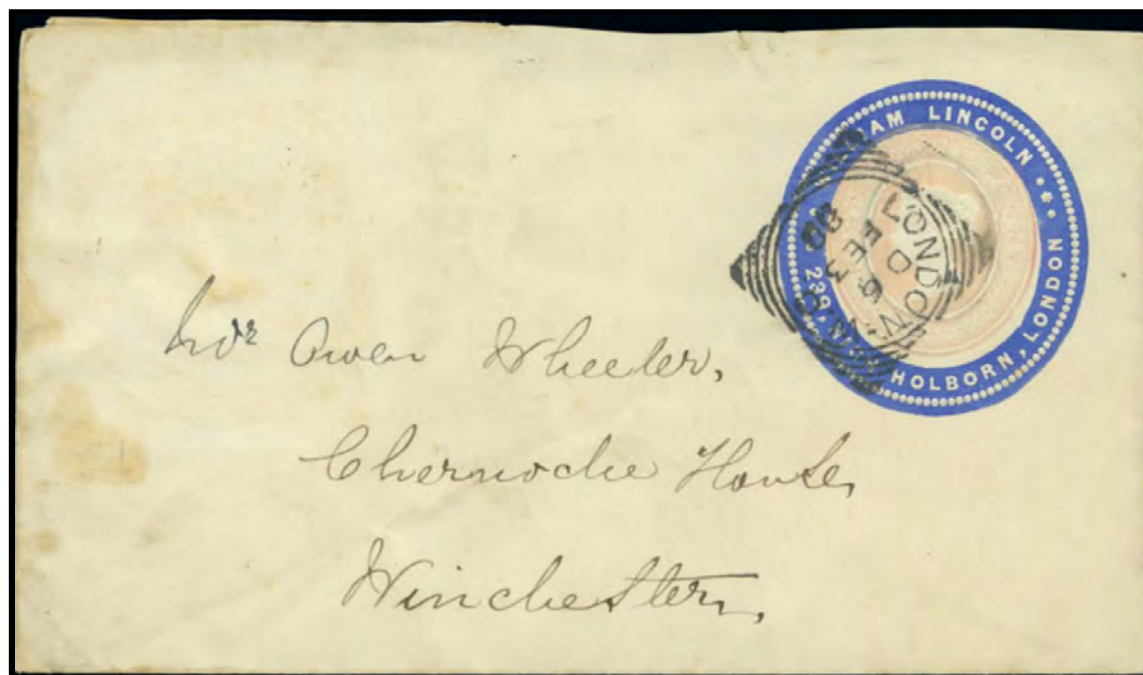 AM LINCOLN
239, HIGH HOLBORN, LONDON
LONDON · W.C
O
FE 3
88
Mr Owen Wheeler,
Chernocke House,
Winchester,